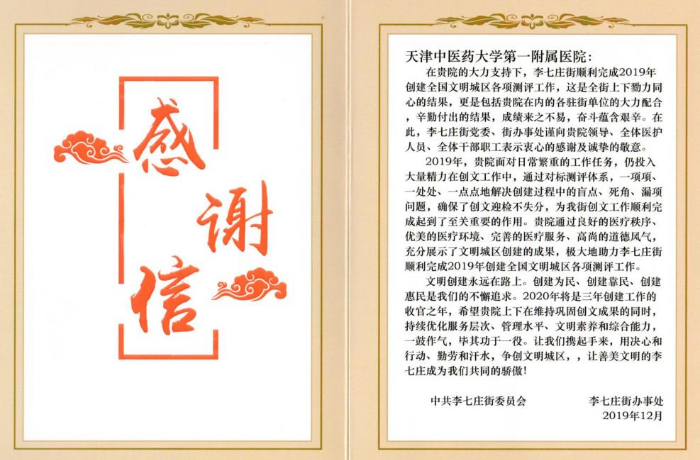 感
谢
信
天津中医药大学第一附属医院：
在贵院的大力支持下，李七庄街顺利完成2019年
创建全国文明城区各项测评工作，这是全街上下勠力同
心的结果，更是包括贵院在内的各驻街单位的大力配合
，辛勤付出的结果，成绩来之不易，奋斗蕴含艰辛。在
此，李七庄街党委、街办事处谨向贵院领导、全体医护
人员、全体干部职工表示衷心的感谢及诚挚的敬意。
2019年，贵院面对日常繁重的工作任务，仍投入
大量精力在创文工作中，通过对标测评体系，一项项、
一处处、一点点地解决创建过程中的盲点、死角、漏项
问题，确保了创文迎检不失分，为我街创文工作顺利完
成起到了至关重要的作用。贵院通过良好的医疗秩序、
优美的医疗环境、完善的医疗服务、高尚的道德风气，
充分展示了文明城区创建的成果，极大地助力李七庄街
顺利完成2019年创建全国文明城区各项测评工作。
文明创建永远在路上。创建为民、创建靠民、创建
惠民是我们的不懈追求。2020年将是三年创建工作的
收官之年，希望贵院上下在维持巩固创文成果的同时，
持续优化服务层次、管理水平、文明素养和综合能力，
一鼓作气，毕其功于一役。让我们携起手来，用决心和
行动、勤劳和汗水，争创文明城区，，让善美文明的李
七庄成为我们共同的骄傲！
中共李七庄街委员会 李七庄街办事处
2019年12月